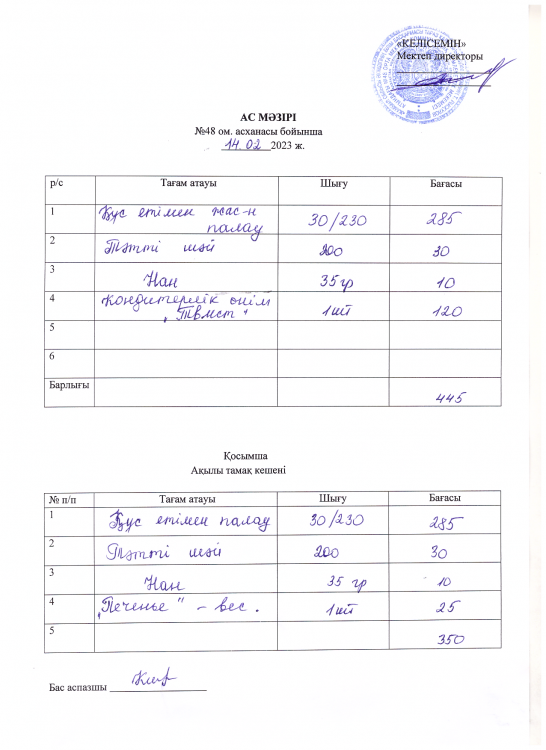 «КЕЛІСЕМІН»
Мектеп директоры
АС МӘЗІРІ
№48 ом. асханасы бойынша
14.02 2023 ж.
р/с Тағам атауы Шығу Бағасы
1 Құс етімен жас-н палау 30/230 285
2 Тәтті шәй 200 30
3 Нан 35 гр 10
4 Кондитерлік өнім „Твист" 1шт 120
5
6
Барлығы 445
Қосымша
Ақылы тамақ кешені
№ п/п Тағам атауы Шығу Бағасы
1 Құс етімен палау 30/230 285
2 Тәтті шәй 200 30
3 Нан 35 гр 10
4 „Печенье" – вес. 1шт 25
5 350
Бас аспазшы